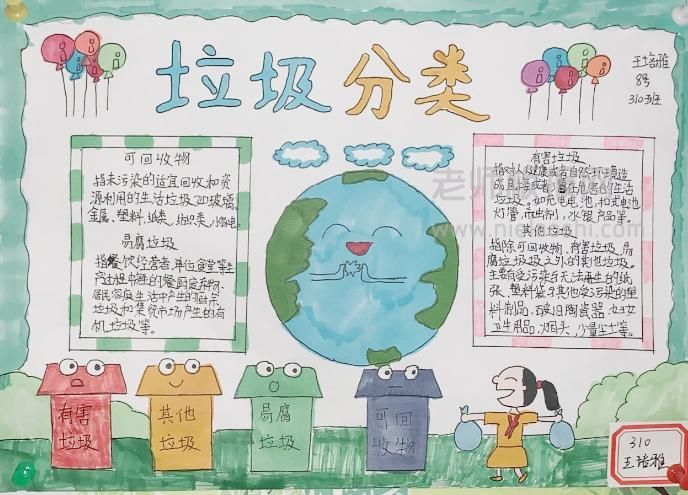 垃圾分类
王培雅
8号
310班
可回收物
指未污染的适宜回收和资
源利用的生活垃圾,如玻璃、
金属、塑料、纸类、纺织类、小家电。
易腐垃圾
指餐饮经营者、单位食堂等生
居民家庭生活中产生的
垃圾和集贸市场产生的有
机垃圾等。
有害垃圾
指对人健康或者自然环境造
成直接或者潜在危害的生活
垃圾。如充电电池,扣式电池
灯管,水银产品等。
其他垃圾
指除可回收物、有害垃圾、易
腐垃圾之外的其他垃圾。
主要有受污染与无法再生的纸
张、塑料袋与其他受污染的塑
料制品、破旧陶瓷器、妇女
卫生用品、烟头、少量尘土等。
有害
垃圾
其他
垃圾
易腐
垃圾
可回
收物
310
王培雅